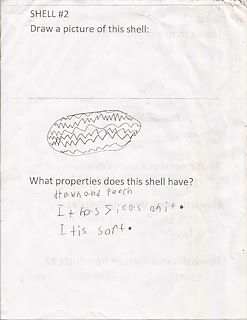 SHELL #2
Draw a picture of this shell:
What properties does this shell have?
drownand peech
It has onit.
Itis soft.